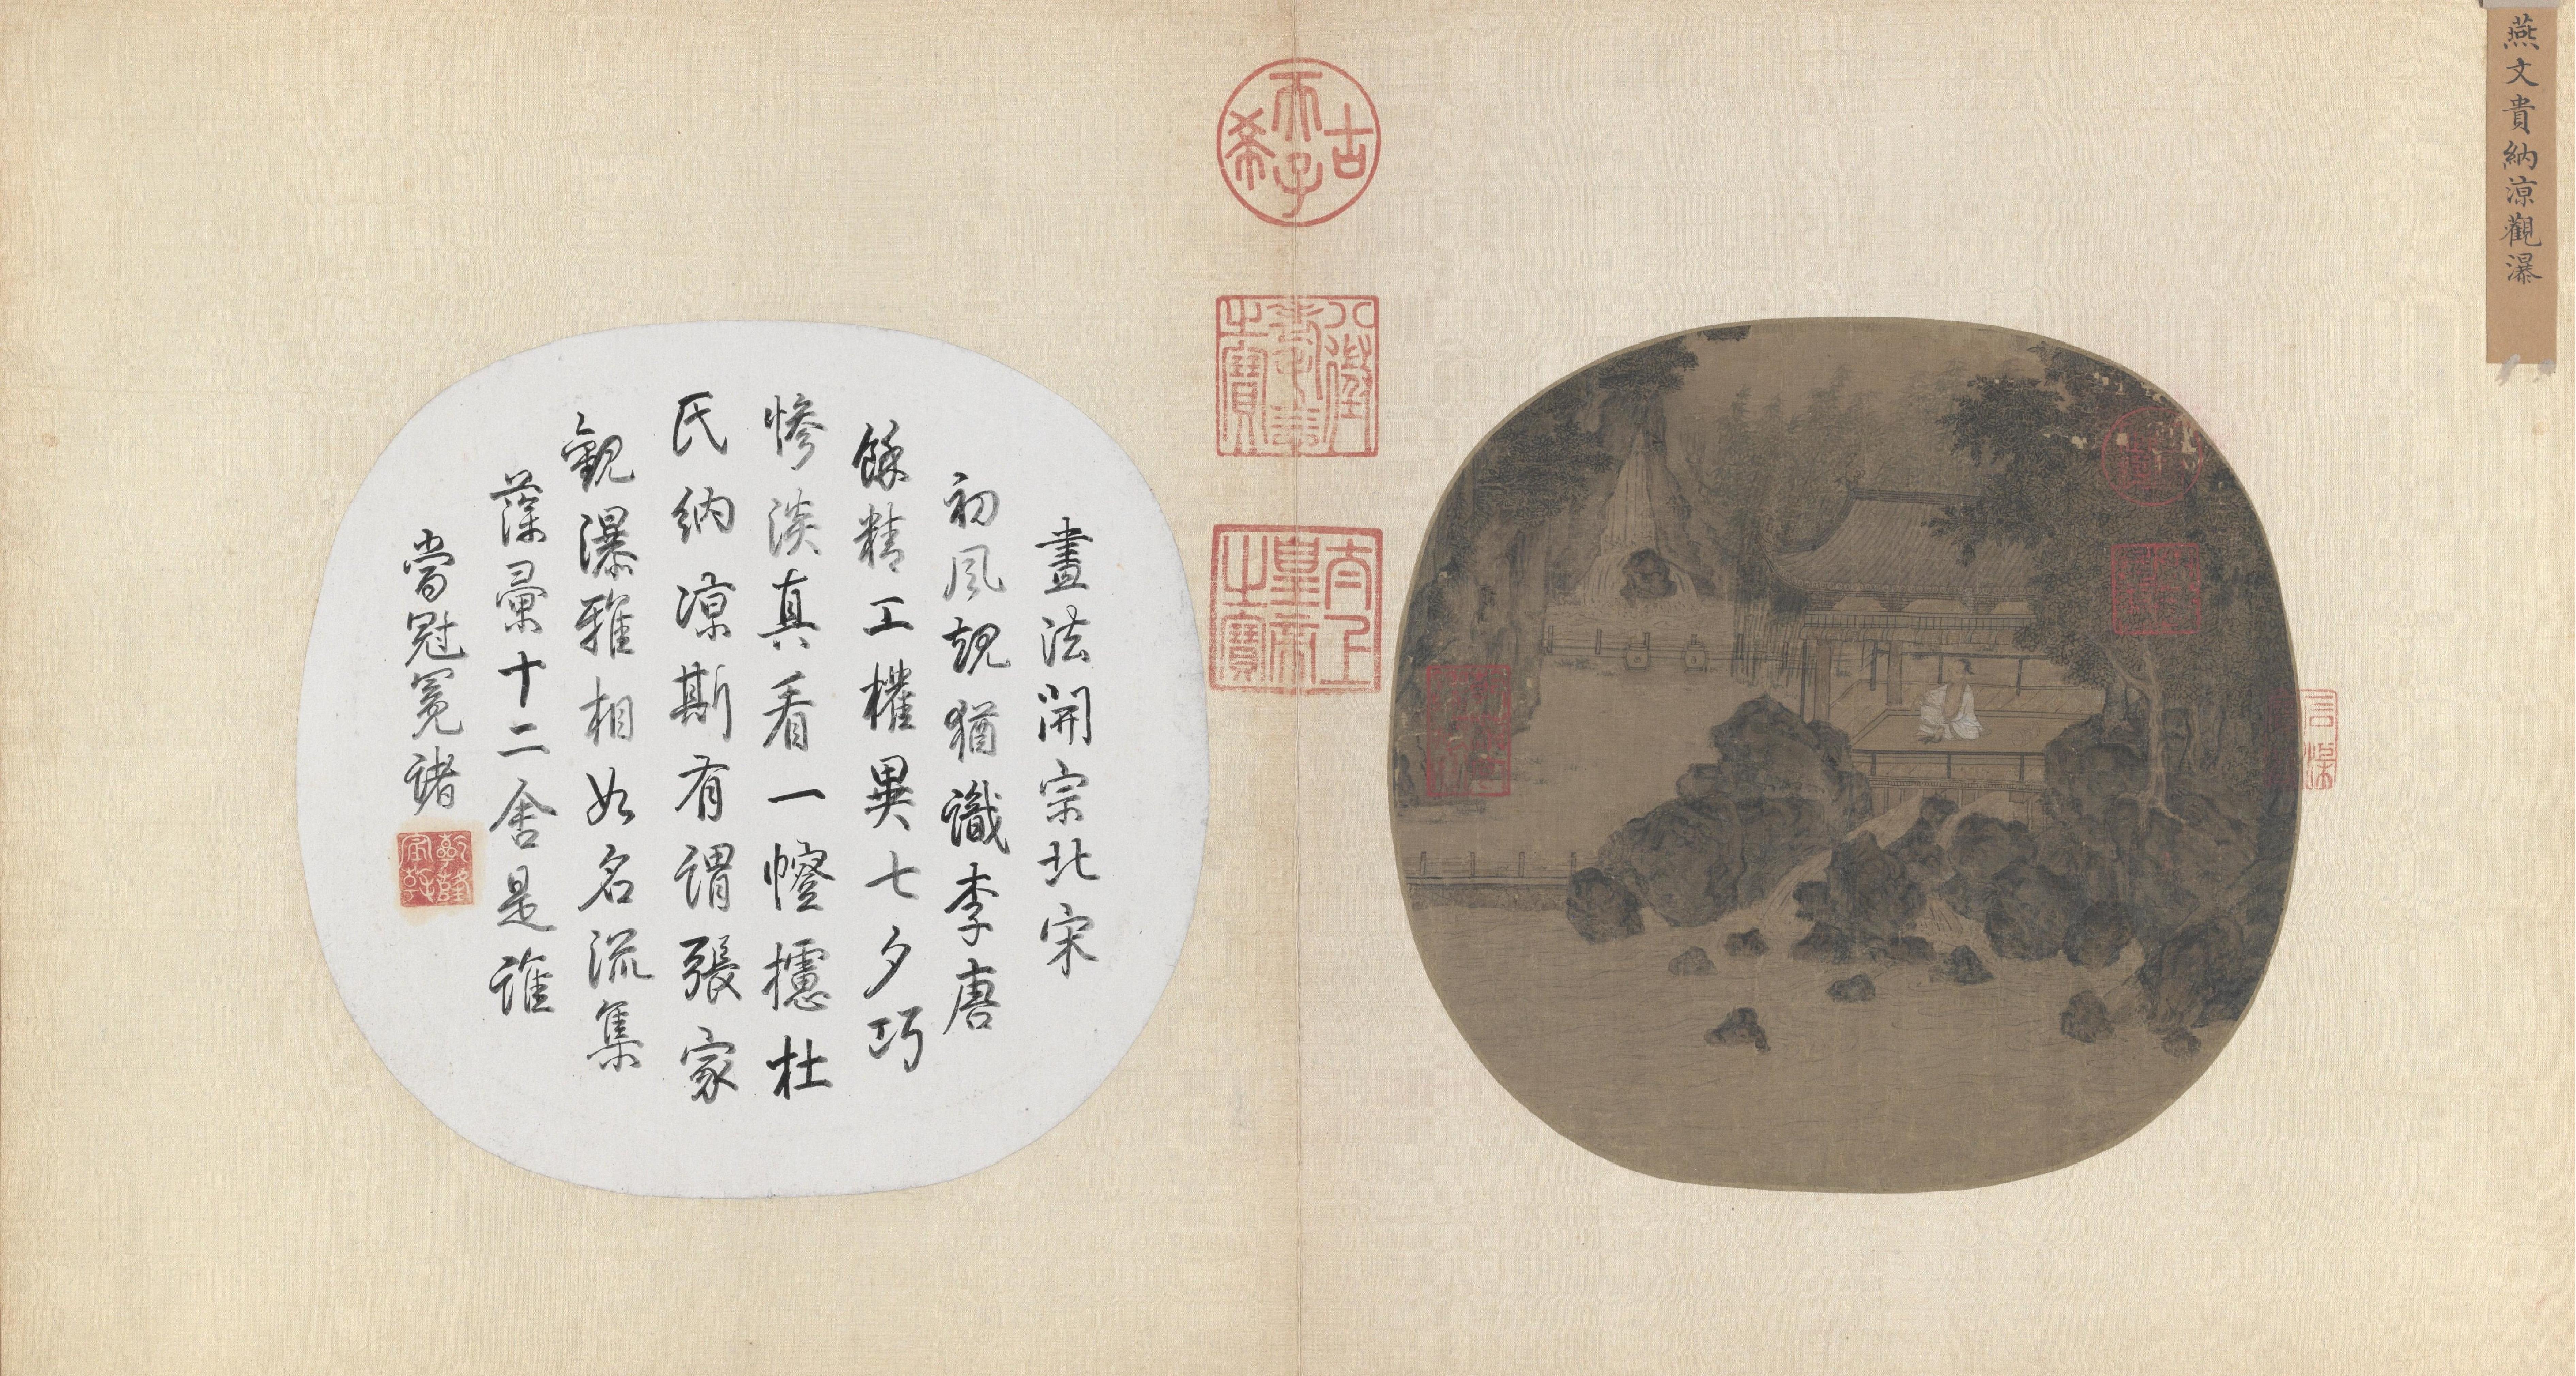 燕文貴納涼觀瀑
古
天子
希
八徵
耄念
之寶
太上
皇帝
之寶
畫法開宗北宋
初風規猶識李唐
餘精工權異七夕巧
慘淡真看一幰攄杜
氏納涼斯有謂張家
觀瀑雅相如名流集
藻彙十二舍是誰
當冠冕諸
乾隆
宸翰